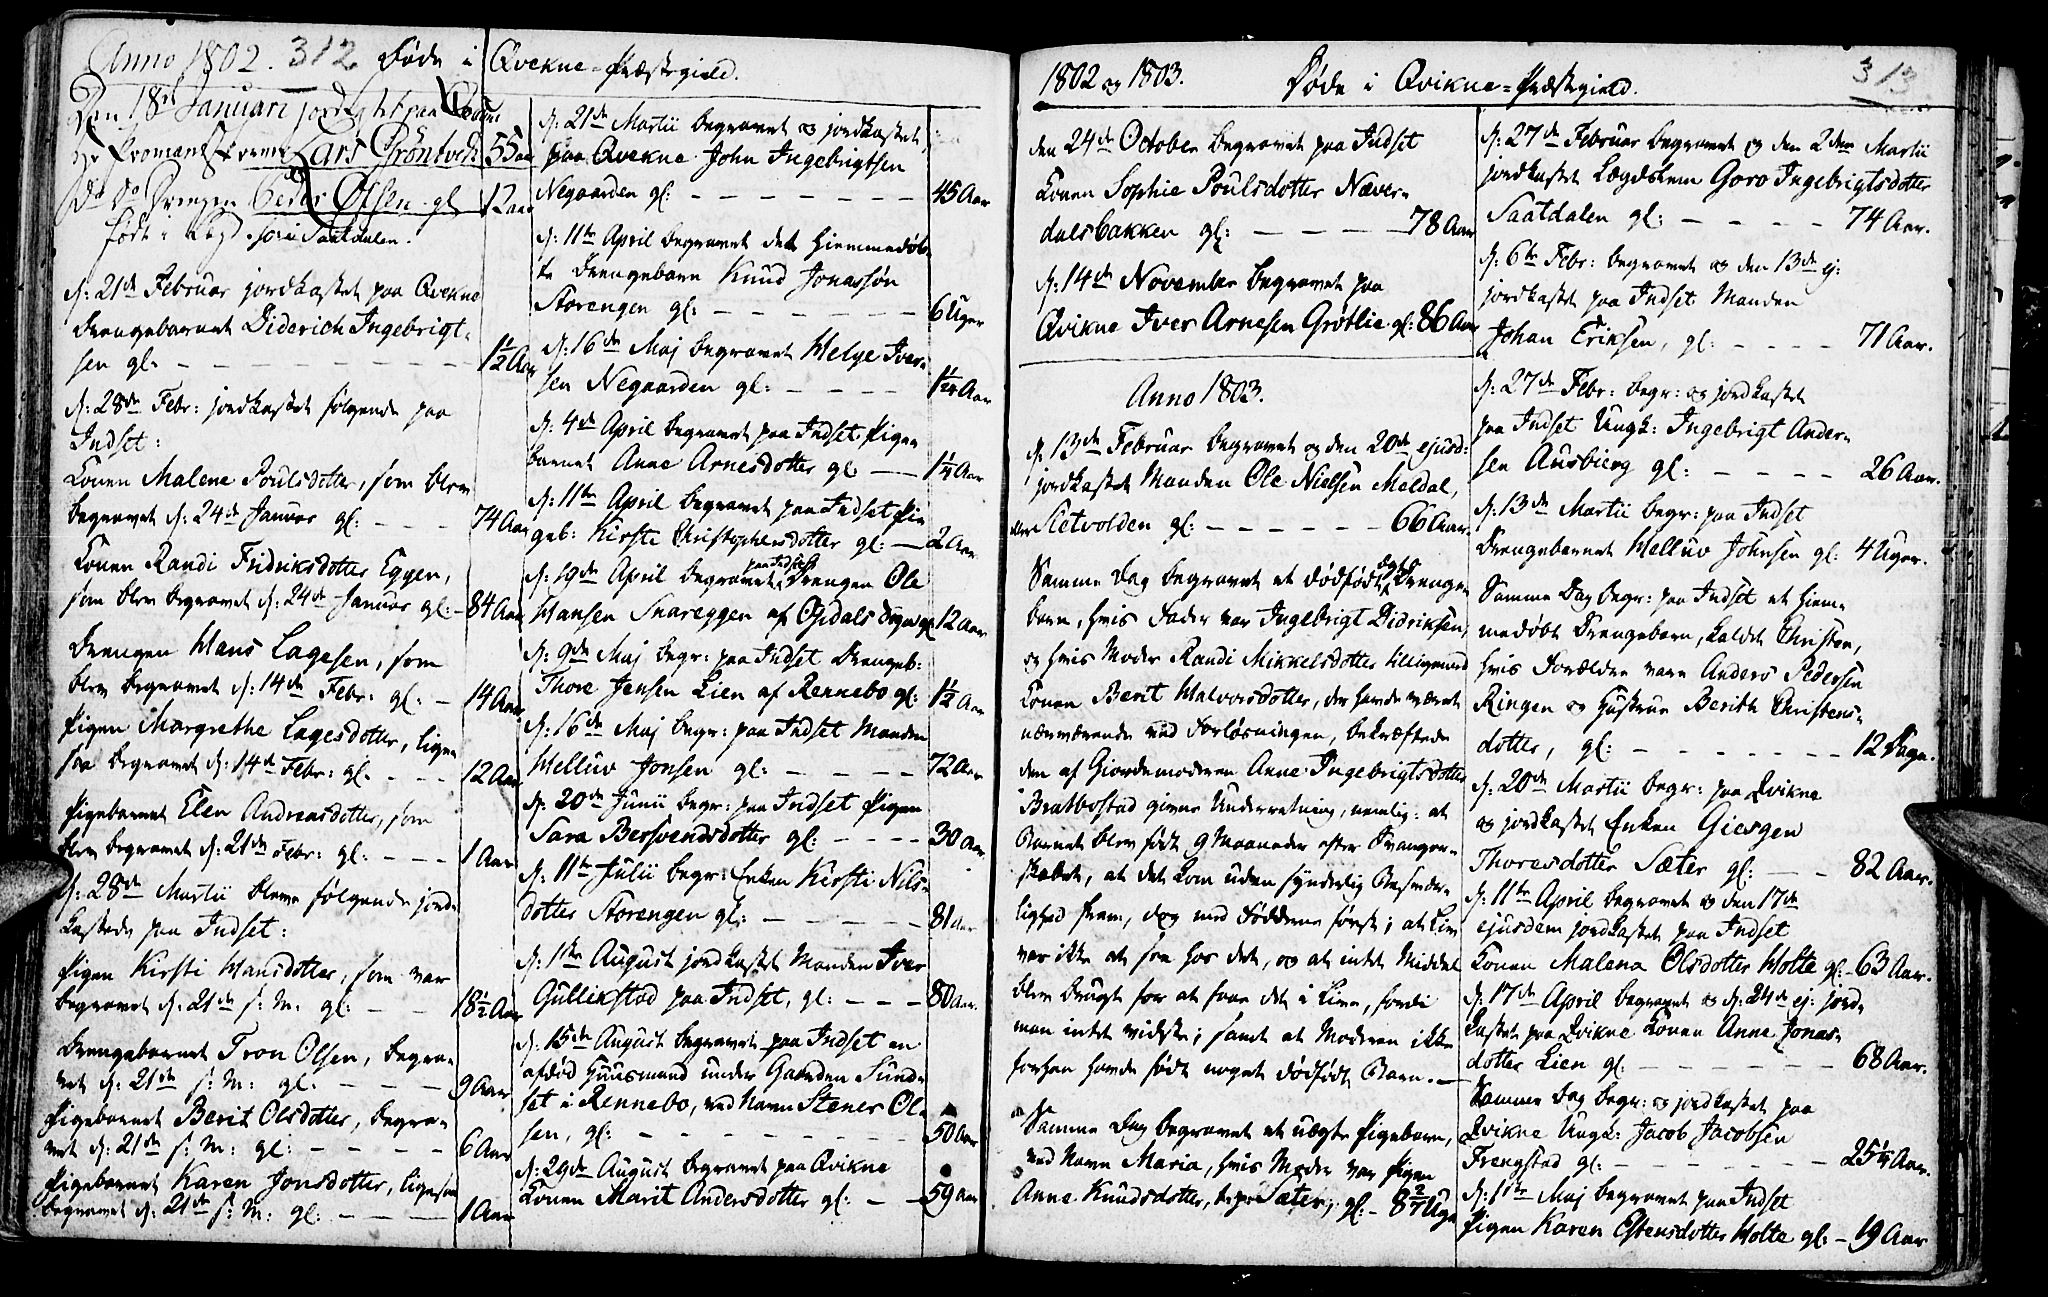 Anno 1802. 312 Døde i Qvekne-Præstegield.
Den 18de Januari jordfæstet paa Qvikne
Lars Gröntvedt 55 aar
Do Do Drengen Peder Olsen gl 12 aar
født i Saatdalen.
d: 21de Februar jordkastet paa Qvekne
Drengebarnet Diderich Ingebrigt-
sen gl. – – – 1½ Aar
d: 28de Febr: jordkastet følgende paa
Indset:
Konen Malene Poulsdotter, som blev
begravet d: 24de Januar gl: – – – 74 Aar
Konen Randi Fridriksdotter Eggen,
som blev begravet d: 24de Januar gl: – 84 Aar
Drengen Hans Lagesen, som
blev begravet d: 14de Febr: gl: – 14 Aar
Pigen Margrethe Lagesdotter, lige-
saa begravet d: 14de Febr: gl: – – – 12 Aar
Pigebarnet Elen Andreasdotter, som
blev begravet d: 21de Febr: gl: – – – 1 Aar
d: 28de Martii bleve følgende jord-
kastede paa Indset:
Pigen Kirsti Hansdotter, som var
begravet d: 21de s: M: gl: – – 18½ Aar
Drengebarnet Tron Olsen, begra-
vet d: 21de s: M: gl: – – – 9 Aar
Pigebarnet Berit Olsdotter, begra-
vet d: 21de s: M: gl: – – – – 6 Aar
Pigebarnet Karen Jonsdotter, ligesaa
begravet d: 21de s: M: gl: – – – 1 Aar
d: 21de Martii begravet og jordkastet
paa Qvekne John Ingebrigtsen
Negaarden gl: – – – – – – – 45 Aar
d: 11te April begravet det hiemmedøb-
te Drengebarn Knud Jonassøn
Storengen gl: – – – – – – 6 Uger
d: 16de Maj begravet Helge Iver-
sen Negaarden gl: – – – – 1¼ Aar
d: 4de April begravet paa Indset Pige-
barnet Anne Arnesdotter gl: – 1¼ Aar
d: 11te April begravet paa Indset Pi-
geb: Kirsti Christophersdotter gl: – 2 Aar
d: 19de April begravet paa Indset Drengen Ole
Hansen Snareggen af Opdals Sogn gl 12 Aar
d: 9de Maj begr: paa Indset Drengeb:
Thore Jensen Lien af Rennebo gl: 1½ Aar
d: 16de Maj begr: paa Indset Manden
Helluv Jonsen gl: – – – – 72 Aar
d: 20de Junii begr: paa Indset Pigen
Sara Bersvendsdotter gl: – – – 30 Aar
d: 11te Julii begr: Enken Kirsti Nils-
dotter Storengen gl: – – – – – 81 aar
d: 1te August jordkastet Manden Iver
Gullikstad paa Indset, gl: – – – 80 aar.
d: 15de August begravet paa Indset en
afdød Huusmand under Gaarden Sund-
set i Rennebo, ved Navn Stener Ol-
sen, gl: – – – – – – – 50 Aar
d: 29de August begravet paa Qvikne
Konen Marit Andersdotter gl: – – 59 aar
1802 og 1803. Døde i Qvikne-Præstegield. 313
den 24de October begravet paa Indset
Konen Sophie Poulsdotter Næver-
dalsbakken gl: – – – – 78 Aar
d: 14de November begravet paa
Qvikne Iver Arnesen Grötlie gl: 86 Aar
Anno 1803.
d. 13de Februar begravet og den 20de ejusd:
jordkastet Manden Ole Nielsen Meldal,
Sletvolden gl: – – – – – – 66 Aar.
Samme Dag begravet et dødfødt Drenge-
barn, hvis Fader var Ingebrigt Didriksen,
og hvis Moder Randi Mikkelsdotter tilligemed
Konen Berit Halvorsdotter, der havde været
nærværende ved Forløsningen, bekræftede
den af Giordemoderen Anne Ingebrigtsdotter
Bratbostad givne Underretning, nemlig: at
Barnet blev født 9 Maaneder efter Svanger-
skabet, at det kom uden synderlig Besvær-
lighed frem, dog med Fødderne først; at Liv
var ikke at see hos det, og at intet Middel
blev brugt for at faae det i Live, fordi
man intet vidste; samt at Moderen ikke
forhen havde født noget dødfødt Barn. –
Samme Dag begravet et uægte Pigebarn,
ved Navn Maria, hvis Moder var Pigen
Anne Knudsdotter, Sæter, gl: – 8 2/7 Uge
d: 27de Februar begravet og den 2den Martii
jordkastet Lægdslem Goro Ingebrigtsdotter
Saatdalen gl: – – – – 74 Aar.
d: 6te Febr: begravet og den 13de ej:
jordkastet paa Indset Manden
Johan Eriksen, gl: – – – – 71 Aar.
d: 27de Febr: begr: og jordkastet
paa Indset Ungk: Ingebrigt Ander-
sen Ausbierg gl: – – – – 26 Aar.
d: 13de Martii begr: paa Indset
Drengebarnet Helluv Johnsen gl: 4 Uger.
Samme Dag begr: paa Indset et hiem-
medøbt Drengebarn, kaldet Christen,
hvis Forældre vare Anders Pedersen
Ringen og Hustrue Berith Christens-
dotter, gl: – – – – – – 12 Dage.
d: 20de Martii begr: paa Qvikne
og jordkastet Enken Giesgen
Thoresdotter Sæter gl: – – 82 Aar.
d: 11te April begravet og den 17de
ejusdem jordkastet paa Indset
Konen Malena Olsdotter Holte gl: – 63 Aar.
d: 17de April begravet og d: 24de ej: jord-
kastet paa Qvikne Konen Anne Jonas-
dotter Lien gl: – – – – – – 68 Aar.
Samme Dag begr: og jordkastet paa
Qvikne Ungk: Jacob Jacobsen
Frengstad gl: – – – – – – – 25¼ Aar.
d: 1te Maj begravet paa Indset
Pigen Karen Estensdotter Holte gl: – 19 Aar